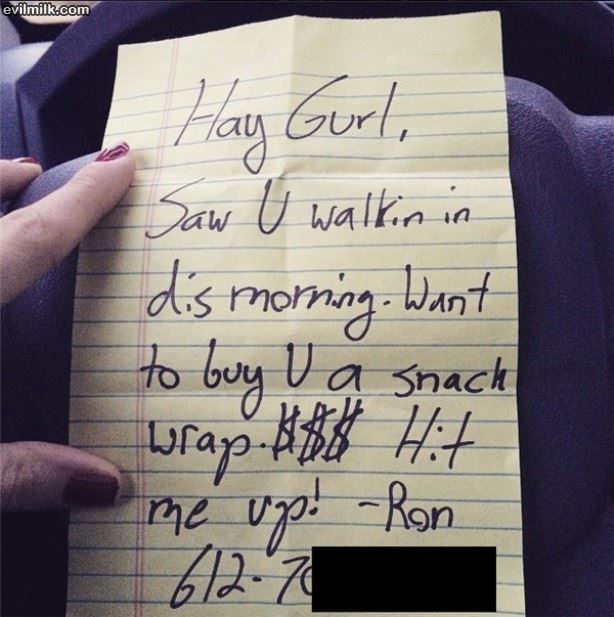 evilmilk.com
Hay Gurl,
Saw U walkin in
dis morning. Want
to buy U a snack
wrap. $$$ Hit
me up! -Ron
612-70